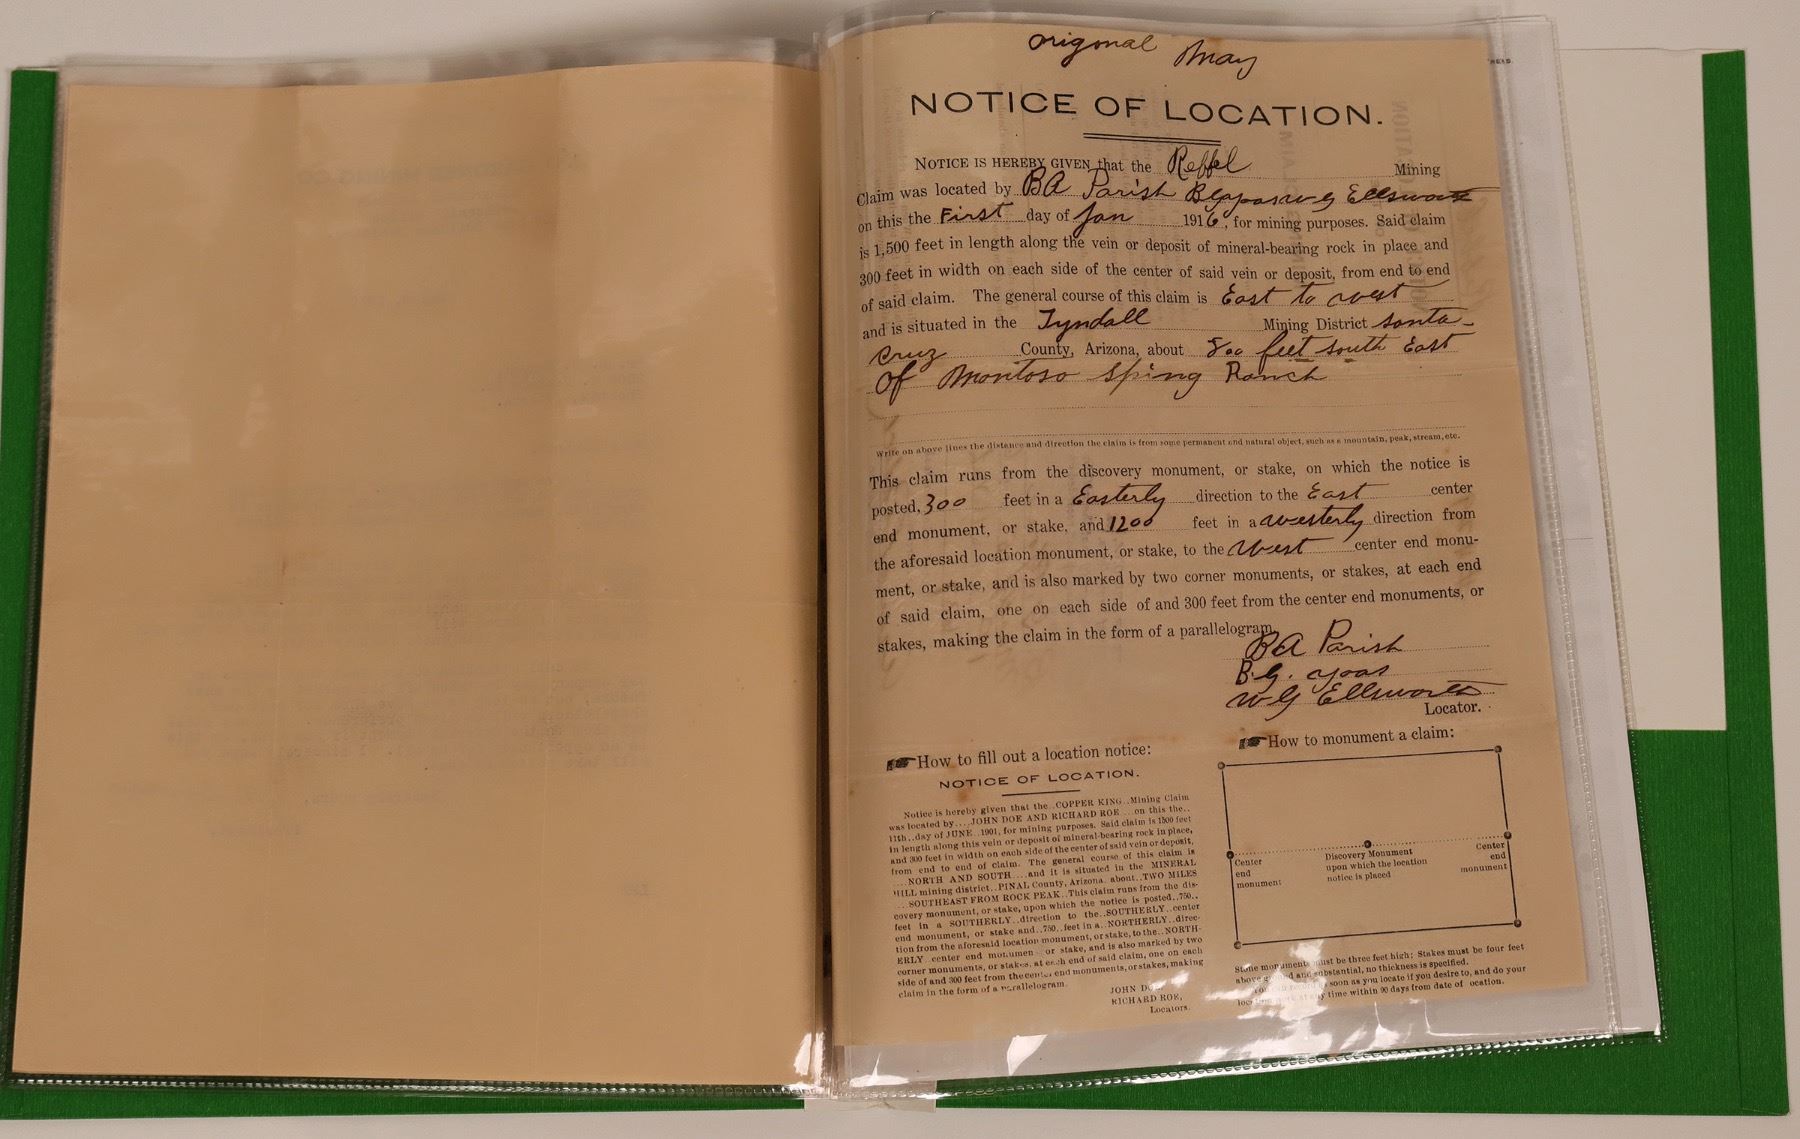 origonal May
NOTICE OF LOCATION.
NOTICE IS HEREBY GIVEN that the Reffel Mining
Claim was located by BA Parish BGyoas WG Ellsworth
on this the First day of Jan 1916, for mining purposes. Said claim
is 1,500 feet in length along the vein or deposit of mineral-bearing rock in place and
300 feet in width on each side of the center of said vein or deposit, from end to end
of said claim. The general course of this claim is East to west
and is situated in the Tyndall Mining District Santa-
Cruz County, Arizona, about 800 feet south East
Of Montoso Sping Ranch
Write on above lines the distance and direction the claim is from some permanent and natural object, such as a mountain, peak, stream, etc.
This claim runs from the discovery monument, or stake, on which the notice is
posted, 300 feet in a Easterly direction to the East center
end monument, or stake, and 1200 feet in a westerly direction from
the aforesaid location monument, or stake, to the West center end monu-
ment, or stake, and is also marked by two corner monuments, or stakes, at each end
of said claim, one on each side of and 300 feet from the center end monuments, or
stakes, making the claim in the form of a parallelogram
BA Parish
B.G. yoas
WG Ellsworth
Locator.
How to fill out a location notice:
NOTICE OF LOCATION.
Notice is hereby given that the..COPPER KING..Mining Claim
was located by....JOHN DOE AND RICHARD ROE...on this the..
11th..day of JUNE..1901, for mining purposes. Said claim is 1500 feet
in length along this vein or deposit of mineral-bearing rock in place,
and 300 feet in width on each side of the center of said vein or deposit,
from end to end of claim. The general course of this claim is
....NORTH AND SOUTH....and it is situated in the MINERAL
HILL mining district..PINAL County, Arizona. about..TWO MILES
...SOUTHEAST FROM ROCK PEAK..This claim runs from the dis-
covery monument, or stake, upon which the notice is posted..750..
feet in a SOUTHERLY..direction to the..SOUTHERLY..center
end monument, or stake and..750..feet in a..NORTHERLY..direc-
tion from the aforesaid location monument, or stake, to the..NORTH-
ERLY..center end monumen or stake, and is also marked by two
corner monuments, or stakes, at each end of said claim, one on each
side of and 300 feet from the center end monuments, or stakes, making
claim in the form of a parallelogram.
JOHN DOE
RICHARD ROE,
Locators.
How to monument a claim:
Center
end
monument
Discovery Monument
upon which the location
notice is placed
Center
end
monument
Stone monuments must be three feet high: Stakes must be four feet
above ground and substantial, no thickness is specified.
You record soon as you locate if you desire to, and do your
location work at any time within 90 days from date of ocation.